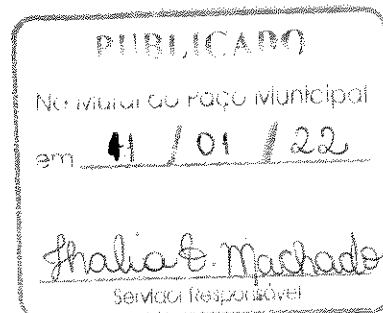 PUBLICADO
No Mural do Paço Municipal
em 11 / 01 / 22
Thalia E. Machado
Servidor Responsável